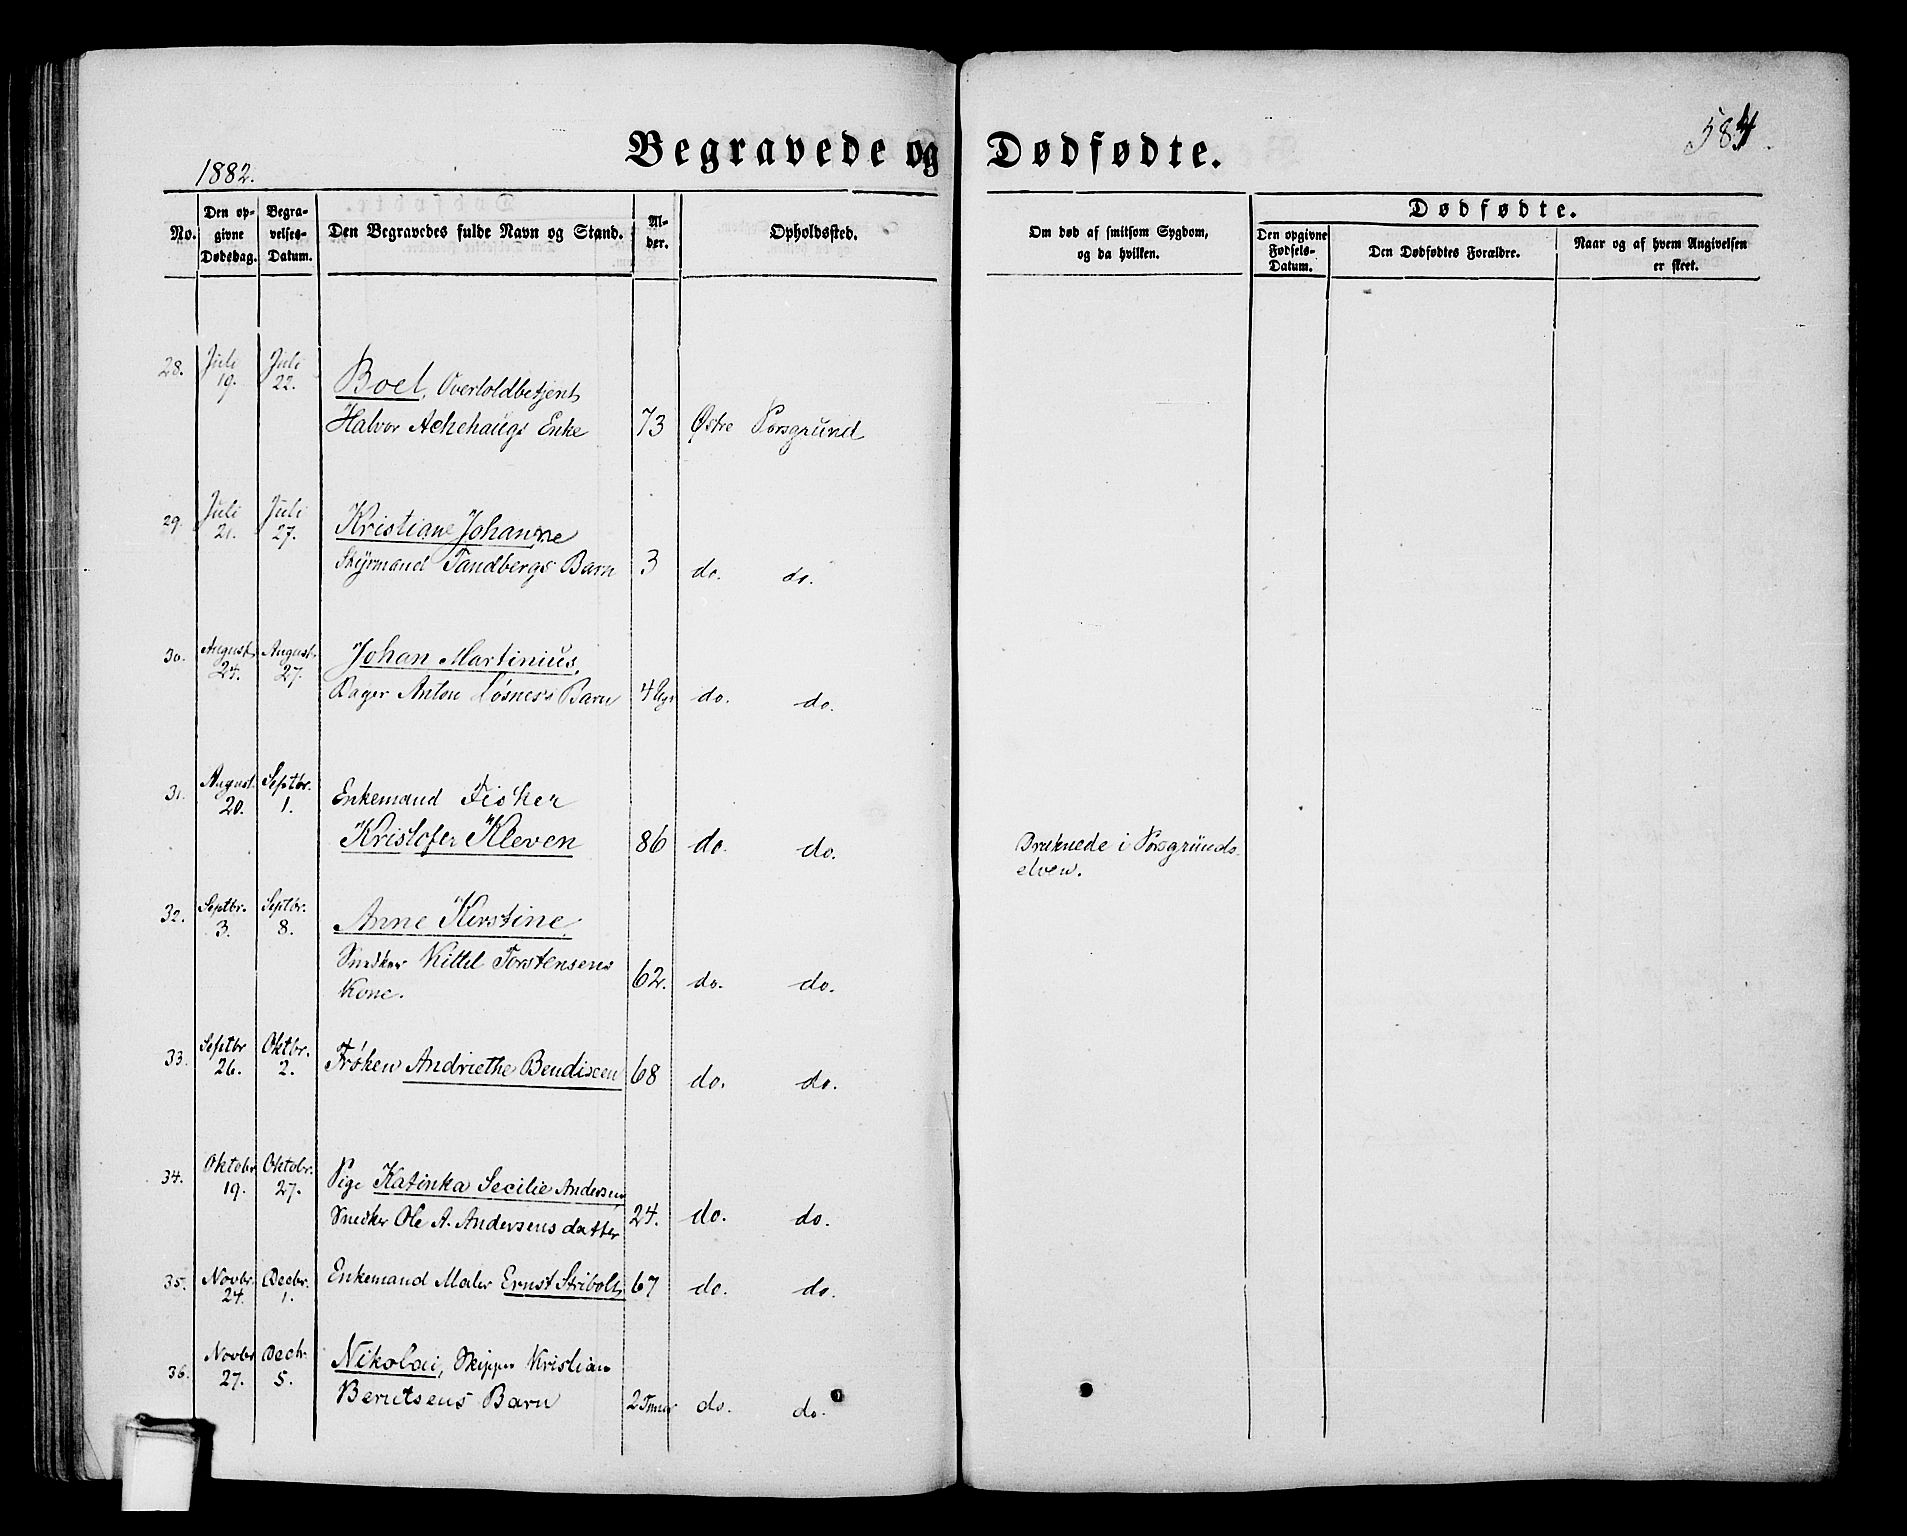 1882.
Begravede og Dødfødte.
584.
No.
Den opgivne Dødsdag.
Begravelses-Datum.
Den Begravedes fulde Navn og Stand.
Alder.
Opholdssted.
Om død af smitsom Sygdom, og da hvilken.
Dødfødte.
Den opgivne Fødsels-Datum.
Den Dødfødtes Forældre.
Naar og af hvem Angivelsen er skeet.
28. Juli 19. Juli 22. Boel, Overtoldbetjent
Halvor Achehaugs Enke 73 Østre Porsgrund
29. Juli 21. Juli 27. Kristiane Johanne
Styrmand Tandbergs Barn 3 do. do.
30. August 24. August 27. Johan Martinius,
Bager Anton Barn 4 do. do.
31. August 20. Septbr. 1. Enkemand Fisker
Kristofer Kleven 86 do. do. Druknede i Porsgrunds-
elven.
32. Septbr. 3. Septbr. 8. Anne Kerstine
Snedker Kittil Torstensens 62. do. do.
Kone.
33. Septbr 26. Oktbr. 2. Frøken Andriethe Bendixen 68 do. do.
34. Oktober 19. Oktobr. 27. Pige Katinka Secilie Andersen,
Snedker Ole A. Andersens datter 24. do. do.
35. Novbr. 24. Decbr. 1. Enkemand Maler Ernst Stribolt 67 do. do.
36. Novbr 27. Decbr. 5. Nikolai, Skipper Kristian
Berntsens Barn 2 Timer do. do.